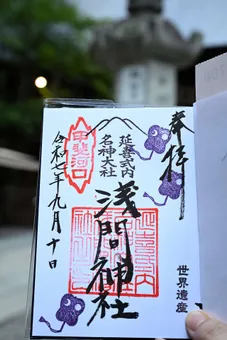 奉拝
延喜式内
名神大社
浅間神社
世界遺産
甲斐河口
令和七年九月十日